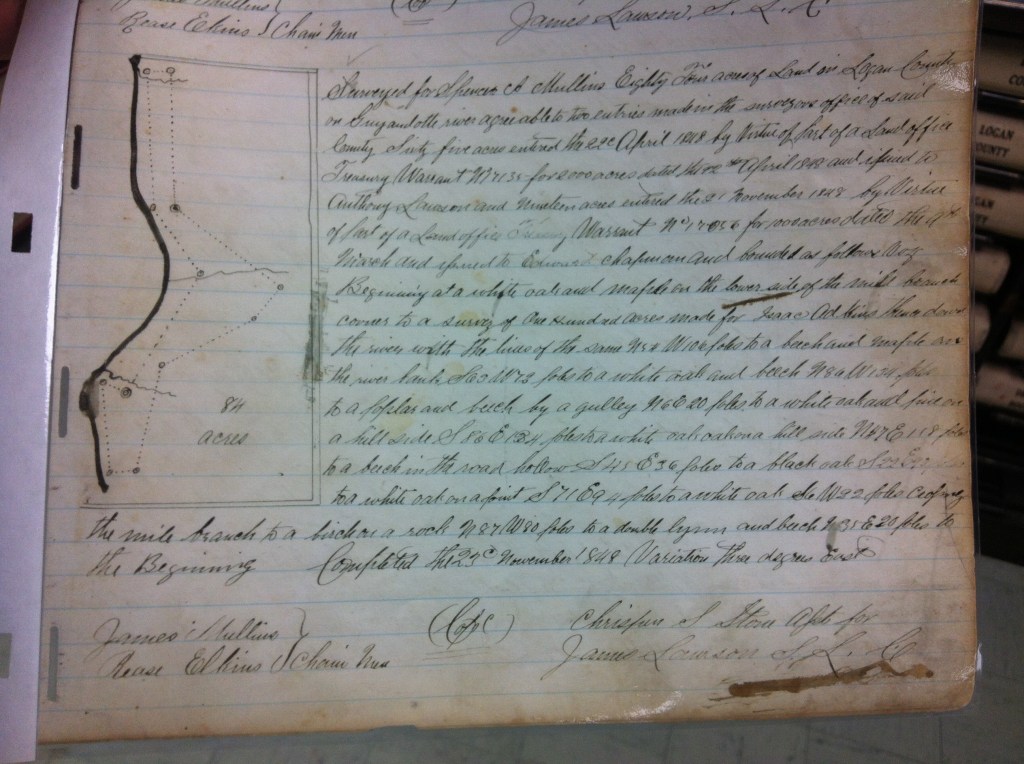 Rease Elkins } Chain Men
James Lawson. S. L. C
Surveyed for Spencer A Mullins Eighty Four acres of Land in Logan County
on Guyandotte river agreeable to two entries made in the surveyors office of said
County Sixty five acres entered the 22d April 1848 by Virtue of part of a Land office
Treasury Warrant for 2000 acres dated the April 1848 and issued to
Anthony Lawson and Nineteen acres entered the 21 November 1848 by Virtue
of part of a Land office Treasury Warrant No for acres dated the 9th
March and issued to Edward Chapman and bounded as follows Viz
Beginning at a white oak and maple on the lower side of the mill branch
corner to a survey of One Hundred acres made for Isaac Adkins thence down
the river with the lines of the same W 106 poles to a beech and maple on
the river bank W 72 poles to a white oak and beech N 80 W poles
to a poplar and beech by a gulley N 6 E 20 poles to a white oak and pine on
a hill side S 86 E 124 poles to a white oak oak on a hill side N 67 E 118 poles
to a beech in the road hollow S 45 E 36 poles to a black oak
to a white oak on a point S 71 E 94 poles to a white oak W 92 poles crossing
the mile branch to a birch on a rock N 87 W 80 poles to a double lynn and beech N 31 E 20 poles to
the Beginning Completed the 23d November 1848 Variation three degrees East
84
acres
James Mullins }
Rease Elkins } Chain Men
(Copc)
Chrispin S Stone Apt for
James Lawson S. L. C
LOGAN
COUNTY